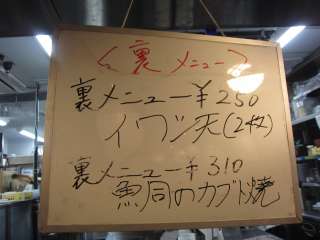 〈裏メニュー〉
裏メニュー¥250
イワシ天(2枚)
裏メニュー¥310
魚同のカブト焼